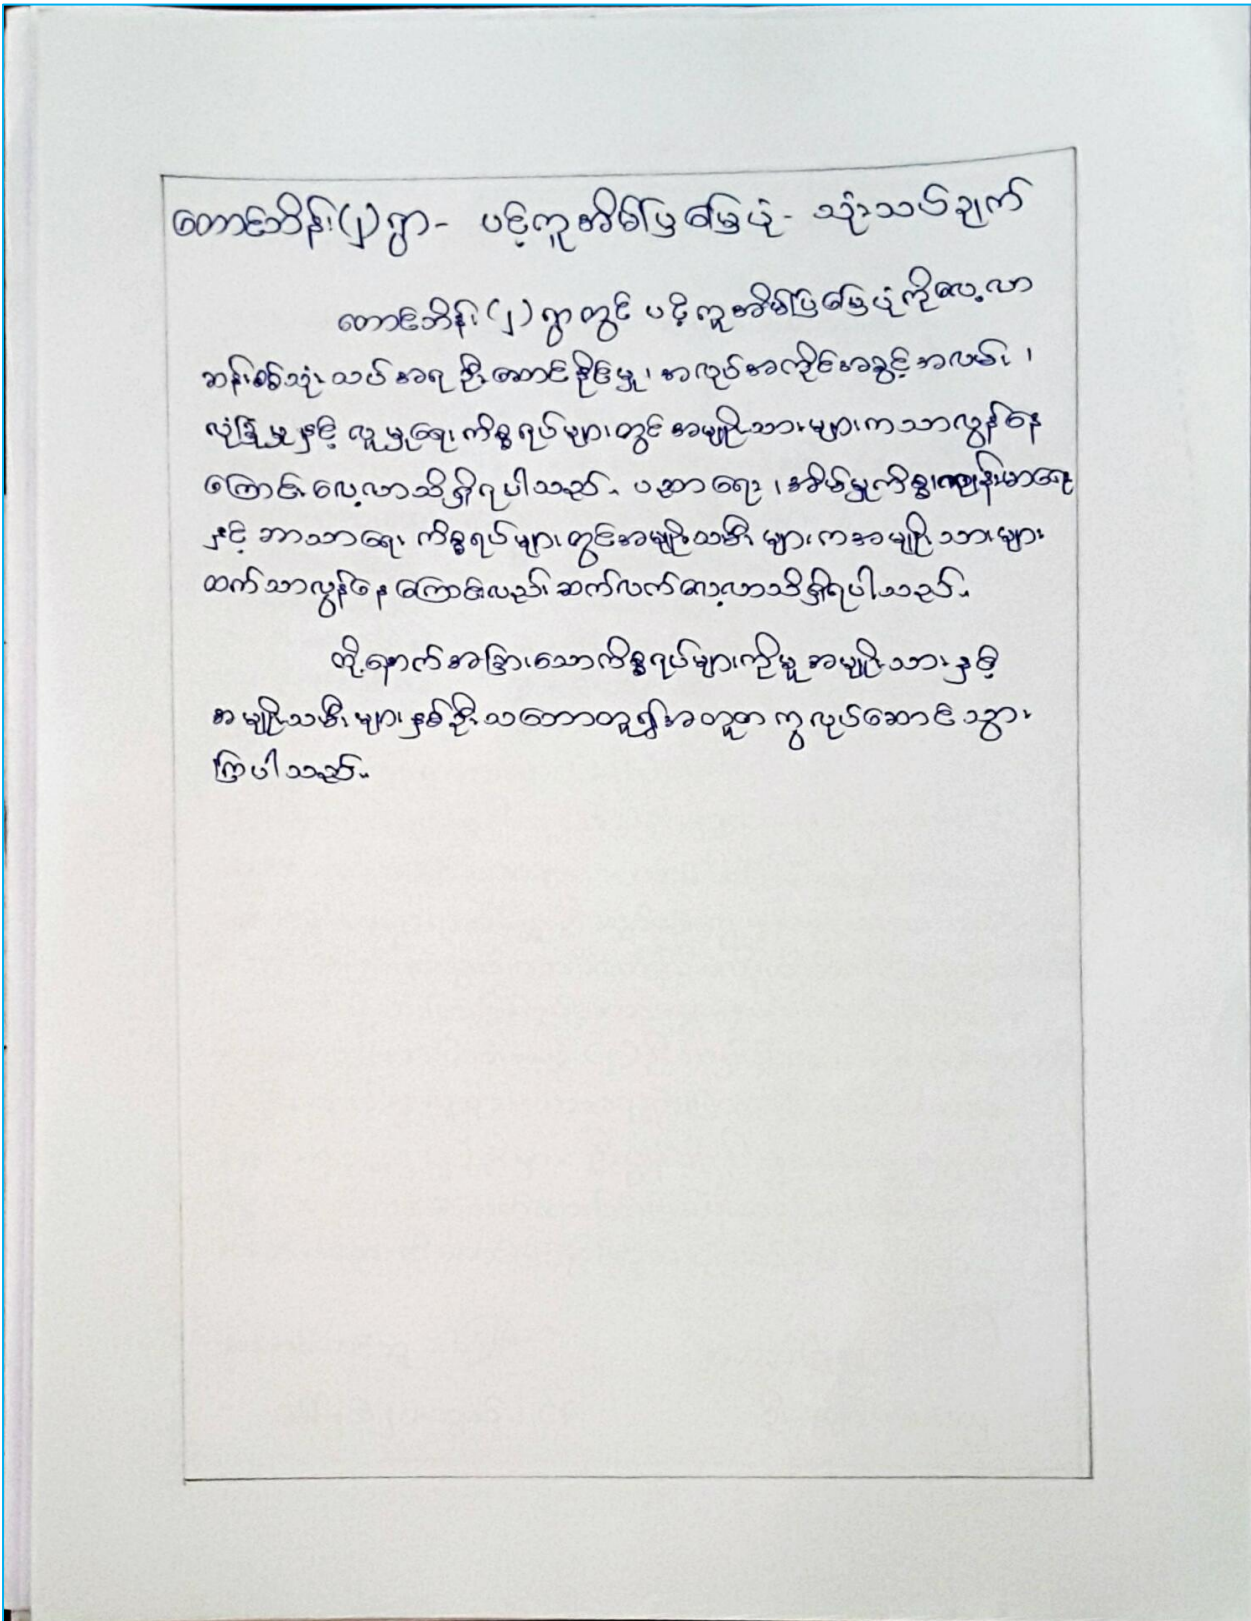 တောင်ဘိန်း(၂)ရွာ - ပင့်ကူအိမ်ပြမြေပုံ - သုံးသပ်ချက်
တောင်ဘိန်း (၂) ရွာတွင် ပင့်ကူအိမ်ပြမြေပုံကိုလေ့လာ
ဆန်းစစ်သုံးသပ်အရ ဦးဆောင်နိုင်မှု၊ အလုပ်အကိုင်အခွင့်အလမ်း ၊
လုံခြုံမှုနှင့် လူမှုရေး ကိစ္စရပ်များတွင် အမျိုးသားများကသာလွန်နေ
ကြောင်း လေ့လာသိရှိရပါသည်။ ပညာရေး ၊ အိမ်မှုကိစ္စ၊ ကျန်းမာရေး
နှင့် ဘာသာရေး ကိစ္စရပ်များတွင်အမျိုးသမီးများကအမျိုးသားများ
ထက်သာလွန်နေကြောင်းလည်း ဆက်လက်လေ့လာသိရှိရပါသည်။
ထို့နောက်အခြားသောကိစ္စရပ်များကိုမူ အမျိုးသားနှင့်
အမျိုးသမီးများ နှစ်ဦးသဘောတူ၍အတူတကွလုပ်ဆောင်သွား
ကြပါသည်။